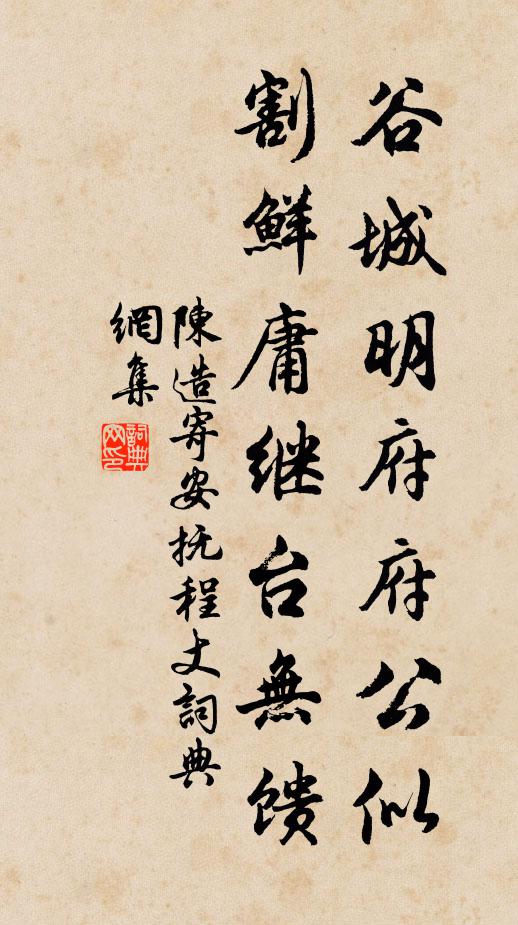 谷城明府府公似
割鮮庸继台無馈
陳造寄安抚程丈詞典
網集
詞典
网印